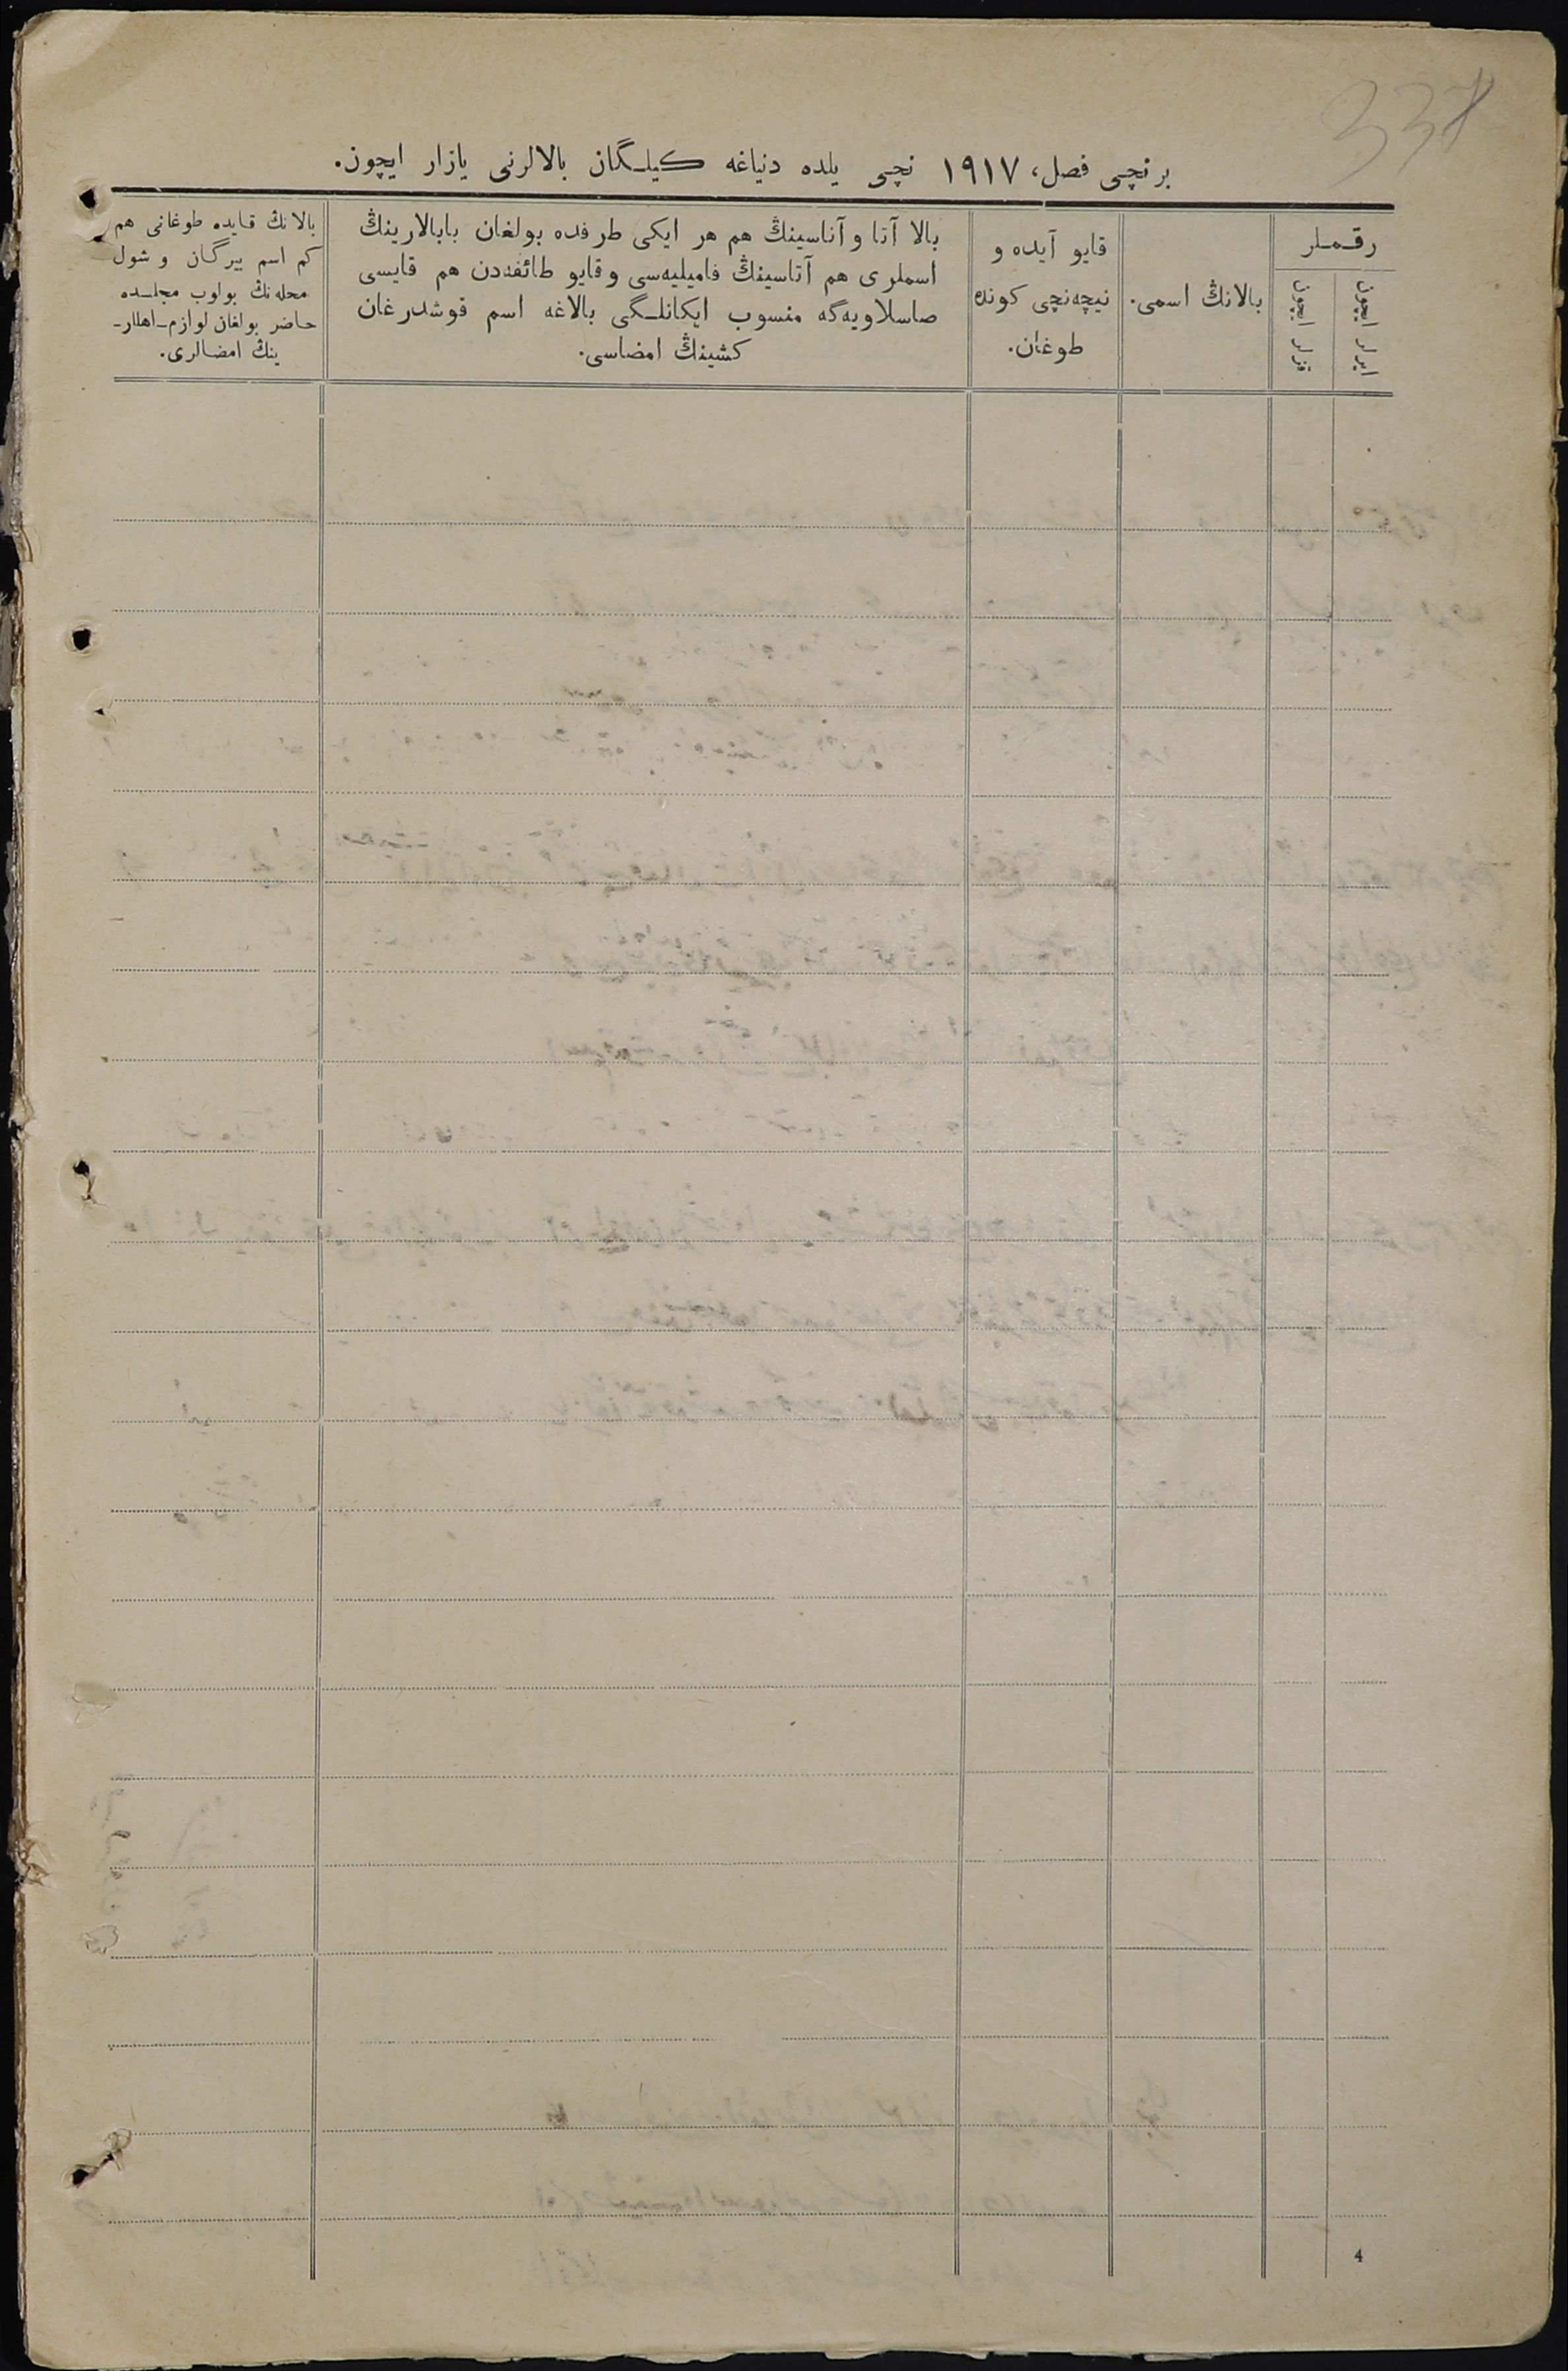 338
برنچی فصل، ١٩١٧ نچی یلده دنیاغه کیلـگان بالالرنی یازار ایچون.
رقـمـلر
ایرلر ایچون
قزلر ایچون
بالانڭ اسمی.
قایو آیده و
نیچه‌نچی کونده
طوغان.
بالا آتا و آناسینڭ هم هر ایکی طرفده بولغان بابالارینڭ
اسملری هم آتاسینڭ فامیلیه‌سی و قایو طائفه‌دن هم قایسی
صاسلاویه‌گه منسوب ایکانلـگی بالاغه اسم قوشدرغان
کشینڭ امضاسی.
بالانڭ قایده طوغانی هم
کم اسم بیرگان و شول
محله‌نڭ بولوب مجلـسده
حاضر بولغان لوازم‌ـاهللرـ
ینڭ امضالری.
4